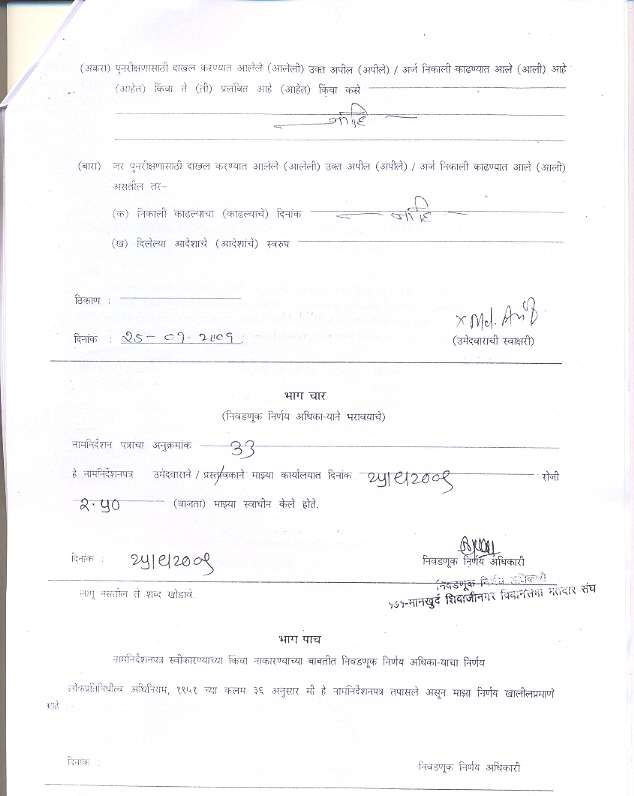 (अकरा) पुनरीक्षणासाठी दाखल करण्यात आलेले (आलेली) उक्त अपील (अपीले) / अर्ज निकाली काढण्यात आले (आली) आहे
(आहेत) किंवा ते (ती) प्रलंबित आहे (आहेत) किंवा कसे
नाही
(बारा) जर पुनरीक्षणासाठी दाखल करण्यात आलेले (आलेली) उक्त अपील (अपीले) / अर्ज निकाली काढण्यात आले (आली)
असतील तर-
(क) निकाली काढल्याचा (काढल्याचे) दिनांक नाही
(ख) दिलेल्या आदेशाचे (आदेशाचे) स्वरुप
ठिकाण :
x Md. Arif
दिनांक : 25-09-2009
(उमेदवाराची स्वाक्षरी)
भाग चार
(निवडणूक निर्णय अधिका-याने भरावयाचे)
नामनिर्देशन पत्राचा अनुक्रमांक 33
हे नामनिर्देशनपत्र उमेदवाराने / प्रस्तावकाने माझ्या कार्यालयात दिनांक २५/९/२००९ रोजी
२.५० (वाजता) माझ्या स्वाधीन केले होते.
दिनांक : २५/९/२००९
निवडणूक निर्णय अधिकारी
निवडणूक निर्णय अधिकारी
लागू नसतील ते शब्द खोडावे.
१७१-मानखुर्द शिवाजीनगर विधानसभा मतदार संघ
भाग पाच
नामनिर्देशनपत्र स्वीकारण्याच्या किंवा नाकारण्याच्या बाबतीत निवडणूक निर्णय अधिका-याचा निर्णय
लोकप्रतिनिधीत्व अधिनियम, १९५१ च्या कलम ३६ अनुसार मी हे नामनिर्देशनपत्र तपासले असून माझा निर्णय खालीलप्रमाणे
आहे
दिनांक :
निवडणूक निर्णय अधिकारी